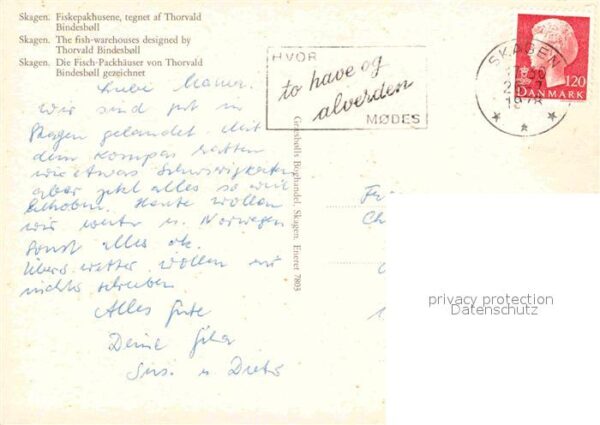 Skagen. Fiskepakhusene, tegnet af Thorvald
Bindesbøll
Skagen. The fish-warehouses designed by
Thorvald Bindesbøll
Skagen. Die Fisch-Packhäuser von Thorvald
Bindesbøll gezeichnet
HVOR
to have og
alverden
MØDES
SKAGEN
1978
120
DANMARK
Mama.
Wir sind gut in
Skagen gelandet. Mit
dem Kompas hatten
wir etwas Schwirigkeiten
aber jetzt alles so weit
behoben. Heute wollen
wir weiter n. Norwegen
Sonst alles ok.
Übers Wetter wollen wir
nichts schreiben
Alles Gute
Deine
u Dieter
Graxholls Boghandel. Skagen. Eneret 7803
privacy protection
Datenschutz